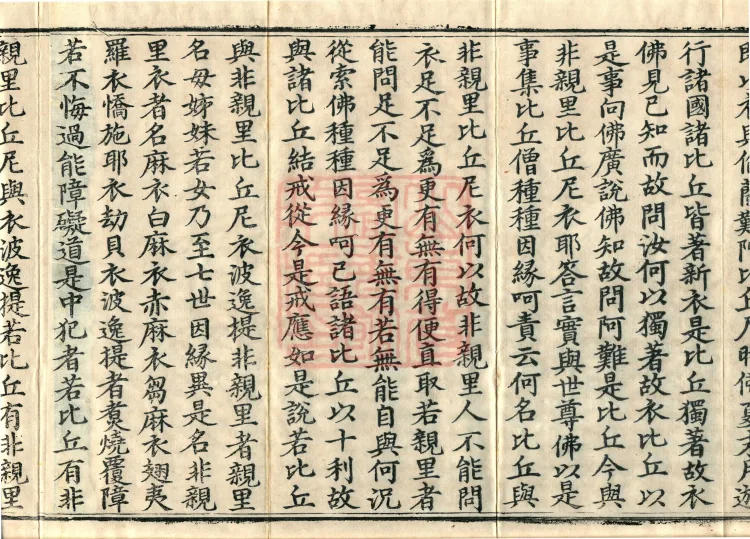 行諸國諸比丘皆著新衣是比丘獨著故衣
佛見已知而故問汝何以獨著故衣比丘以
是事向佛廣說佛知故問阿難是比丘今與
非親里比丘尼衣耶答言實與世尊佛以是
事集比丘僧種種因緣呵責云何名比丘與
非親里比丘尼衣何以故非親里人不能問
衣足不足爲更有無有得便直取若親里者
能問足不足爲更有無有若無能自與何況
從索佛種種因緣呵已語諸比丘以十利故
與諸比丘結戒從今是戒應如是說若比丘
與非親里比丘尼衣波逸提非親里者親里
名母姊妹若女乃至七世因緣異是名非親
里衣者名麻衣白麻衣赤麻衣芻麻衣翅夷
羅衣憍施耶衣劫貝衣波逸提者煑燒覆障
若不悔過能障礙道是中犯者若比丘有非
親里比丘尼與衣波逸提若比丘有非親里